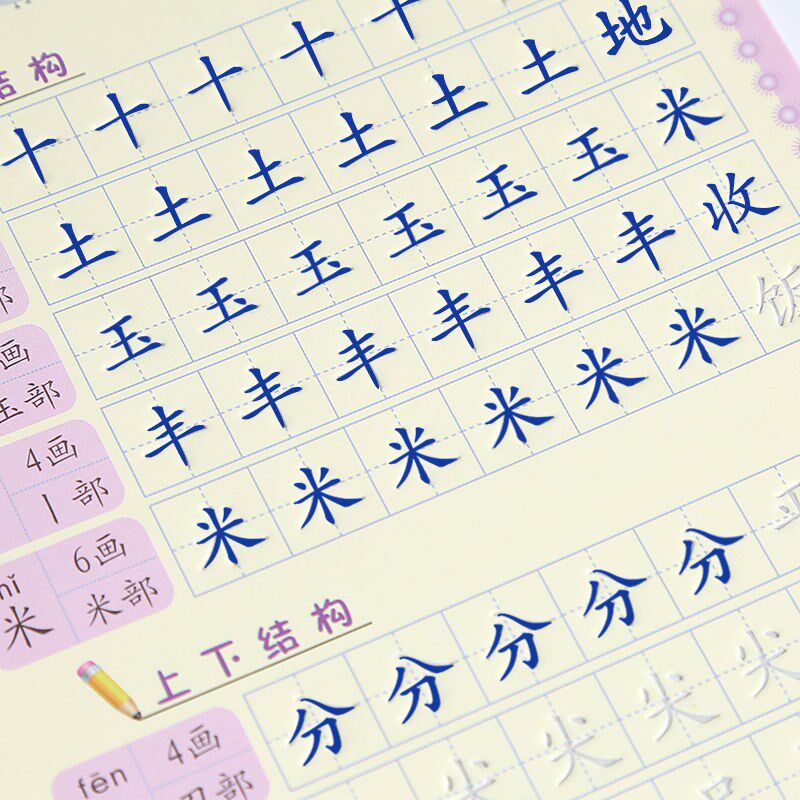 结构
十 十 十 十 十
土 土 土 土 土 土 地
部
玉 玉 玉 玉 玉 玉 米
画
玉部
丰 丰 丰 丰 丰 丰 收
4画
丨部
米 米 米 米 米 米 饭
6画
米 米部
上下结构
分 分 分 分 分
fēn 4画
部
尖 尖 尖 尖